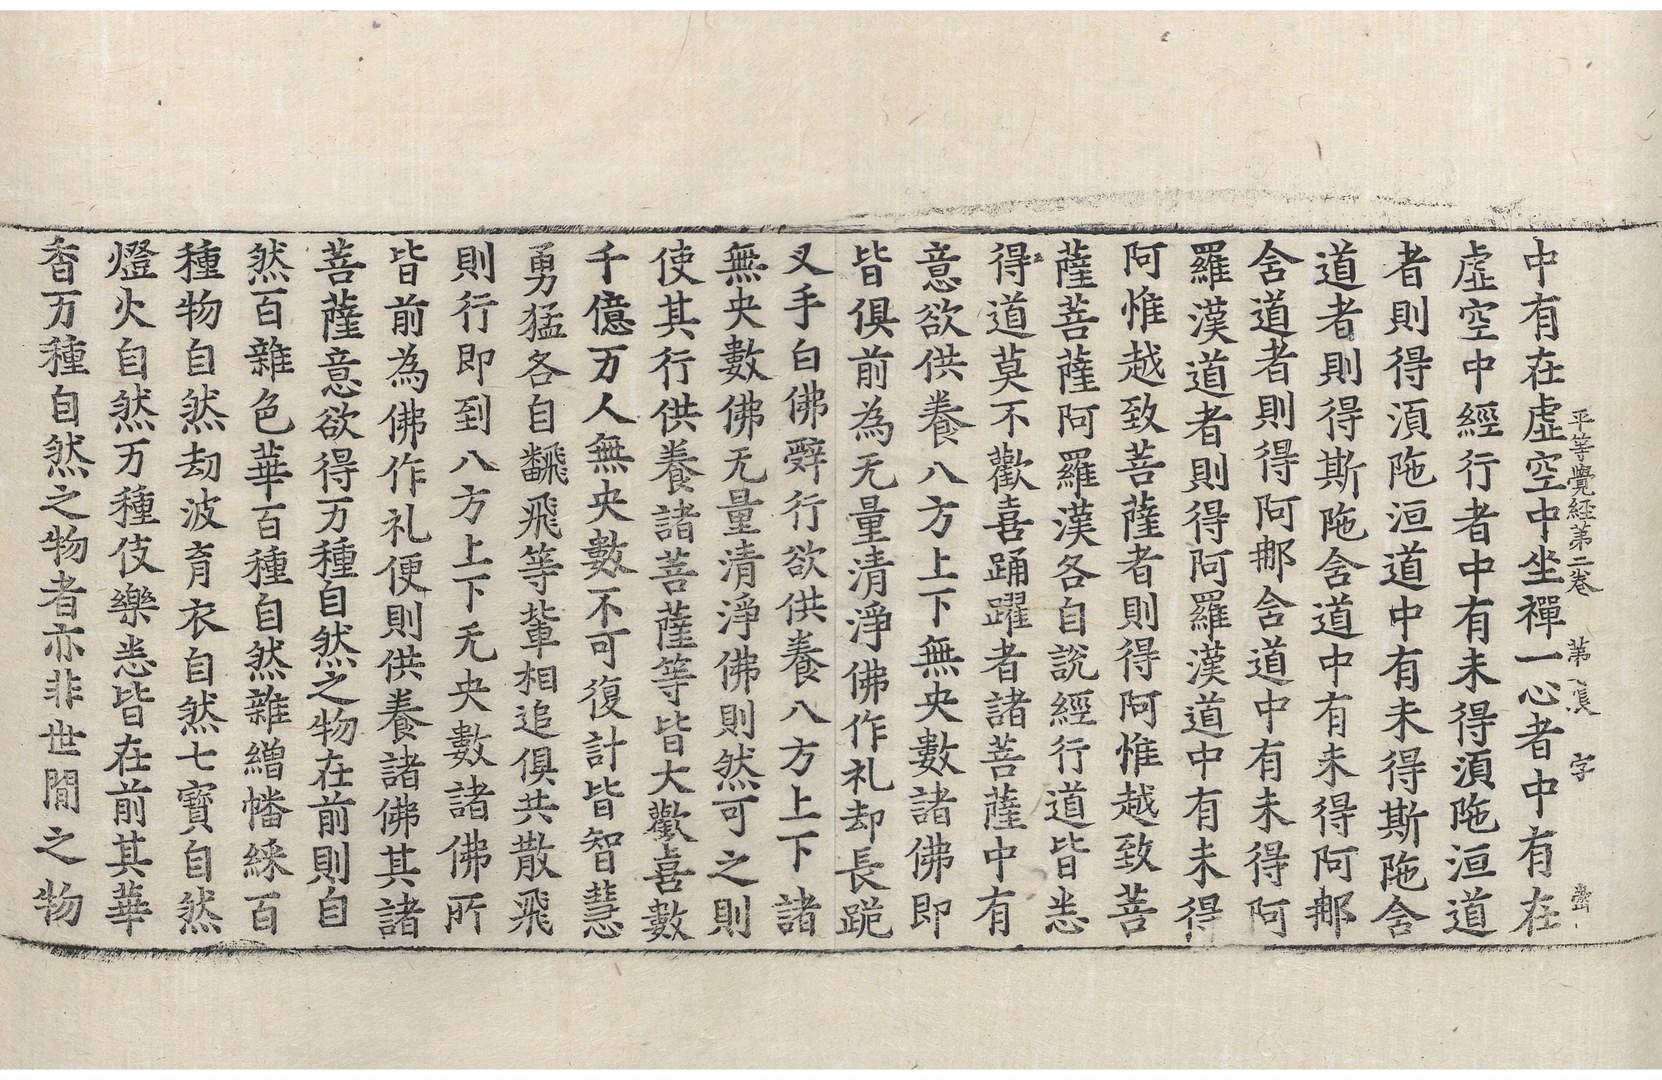 平等覺經第二卷 第 張 字
中有在虛空中坐禪一心者中有在
虛空中經行者中有未得湏陁洹道
者則得湏陁洹道中有未得斯陁含
道者則得斯陁含道中有未得阿那
含道者則得阿那含道中有未得阿
羅漢道者則得阿羅漢道中有未得
阿惟越致菩薩者則得阿惟越致菩
薩菩薩阿羅漢各自說經行道皆悉
得道莫不歡喜踊躍者諸菩薩中有
意欲供養八方上下無央數諸佛即
皆俱前為无量清淨佛作礼却長跪
叉手白佛辭行欲供養八方上下諸
無央數佛无量清淨佛則然可之則
使其行供養諸菩薩等皆大歡喜數
千億万人無央數不可復計皆智慧
勇猛各自飜飛等輩相追俱共散飛
則行即到八方上下无央數諸佛所
皆前為佛作礼便則供養諸佛其諸
菩薩意欲得万種自然之物在前則自
然百雜色華百種自然雜繒幡綵百
種物自然劫波育衣自然七寶自然
燈火自然万種伎樂悉皆在前其華
香万種自然之物者亦非世間之物